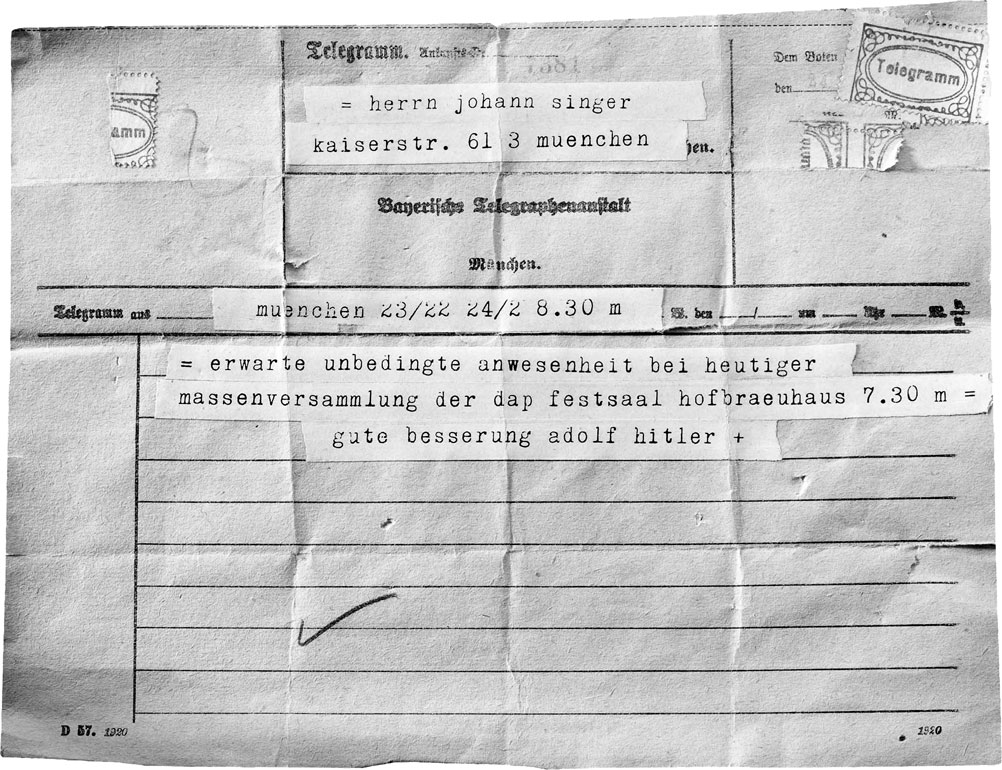 Telegramm.
Dem Boten
den
Telegramm
amm
= herrn johann singer
kaiserstr. 61 3 muenchen
hen.
Bayerische Telegraphenanstalt
München.
Telegramm aus muenchen 23/22 24/2 8.30 m W. den / um Uhr M.
= erwarte unbedingte anwesenheit bei heutiger
massenversammlung der dap festsaal hofbraeuhaus 7.30 m =
gute besserung adolf hitler +
D 57. 1920
1920